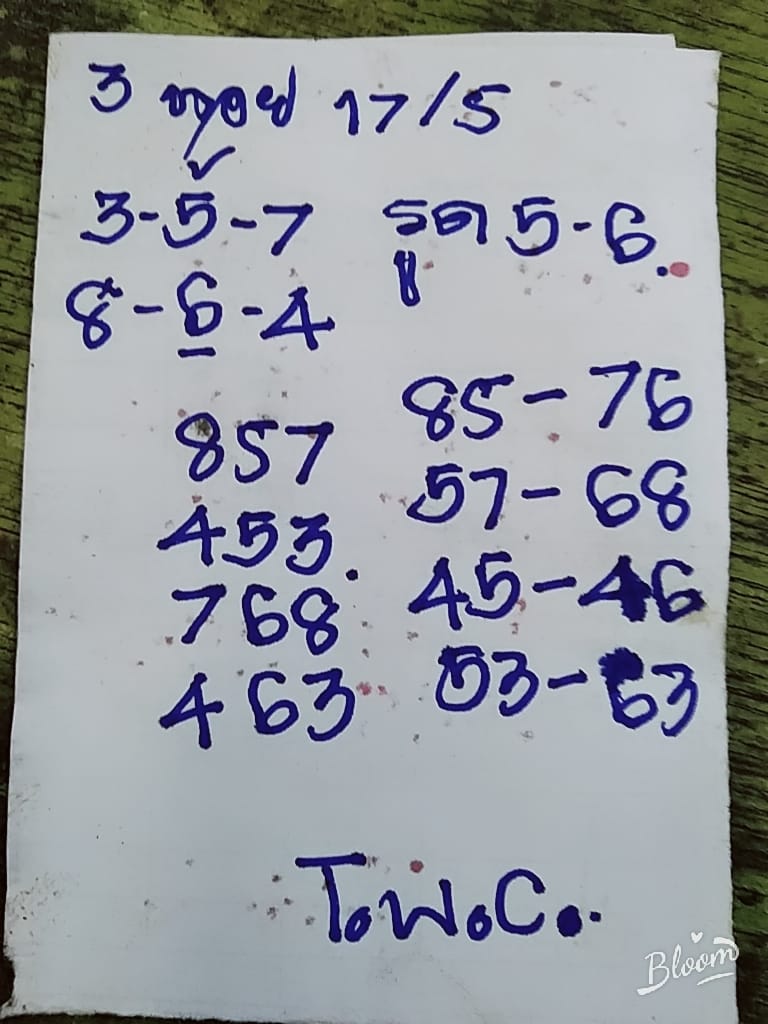 3 หุ้น 17/5
3-5-7 รูด 5-6.
8-6-4
857 85-76
453. 57-68
768 45-46
463 53-63
T.W.C.
Bloom